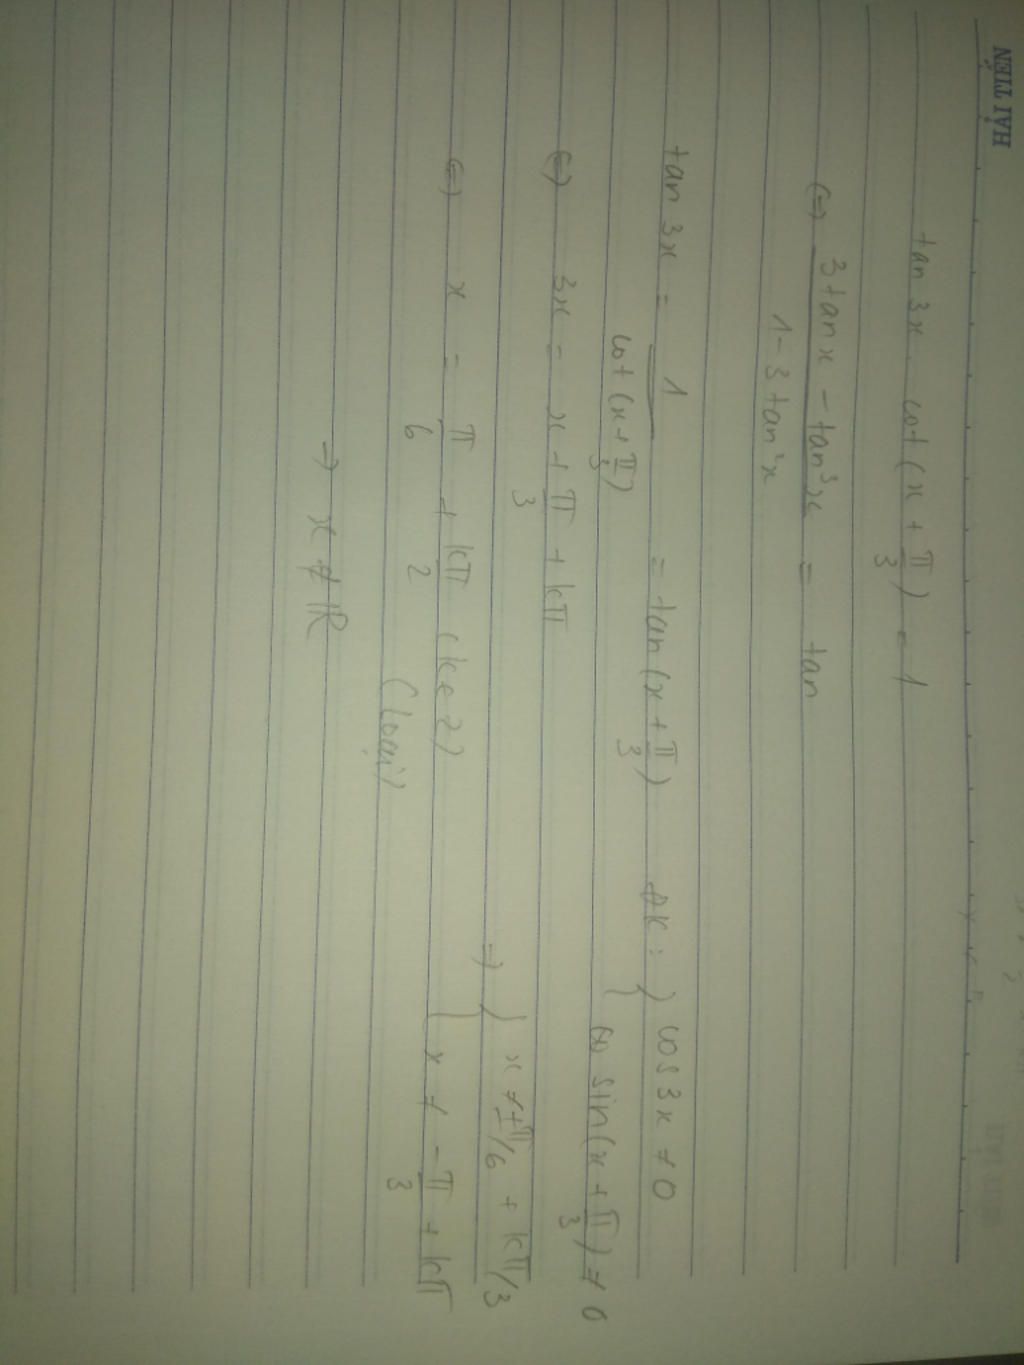 HẢI TIẾN
tan 3x . cot (x + π/3) = 1
(=) (3 tan x - tan³x)/(1 - 3 tan²x) = tan
tan 3x = 1/cot (x + π/3) = tan (x + π/3) ĐK : { cos 3x ≠ 0
(=) 3x = x + π/3 + kπ sin (x + π/3) ≠ 0
=> { x ≠ ±π/6 + kπ/3
(=) x = π/6 + kπ/2 (k ∈ Z) x ≠ -π/3 + kπ
(loại)
=> x ∉ ℝ